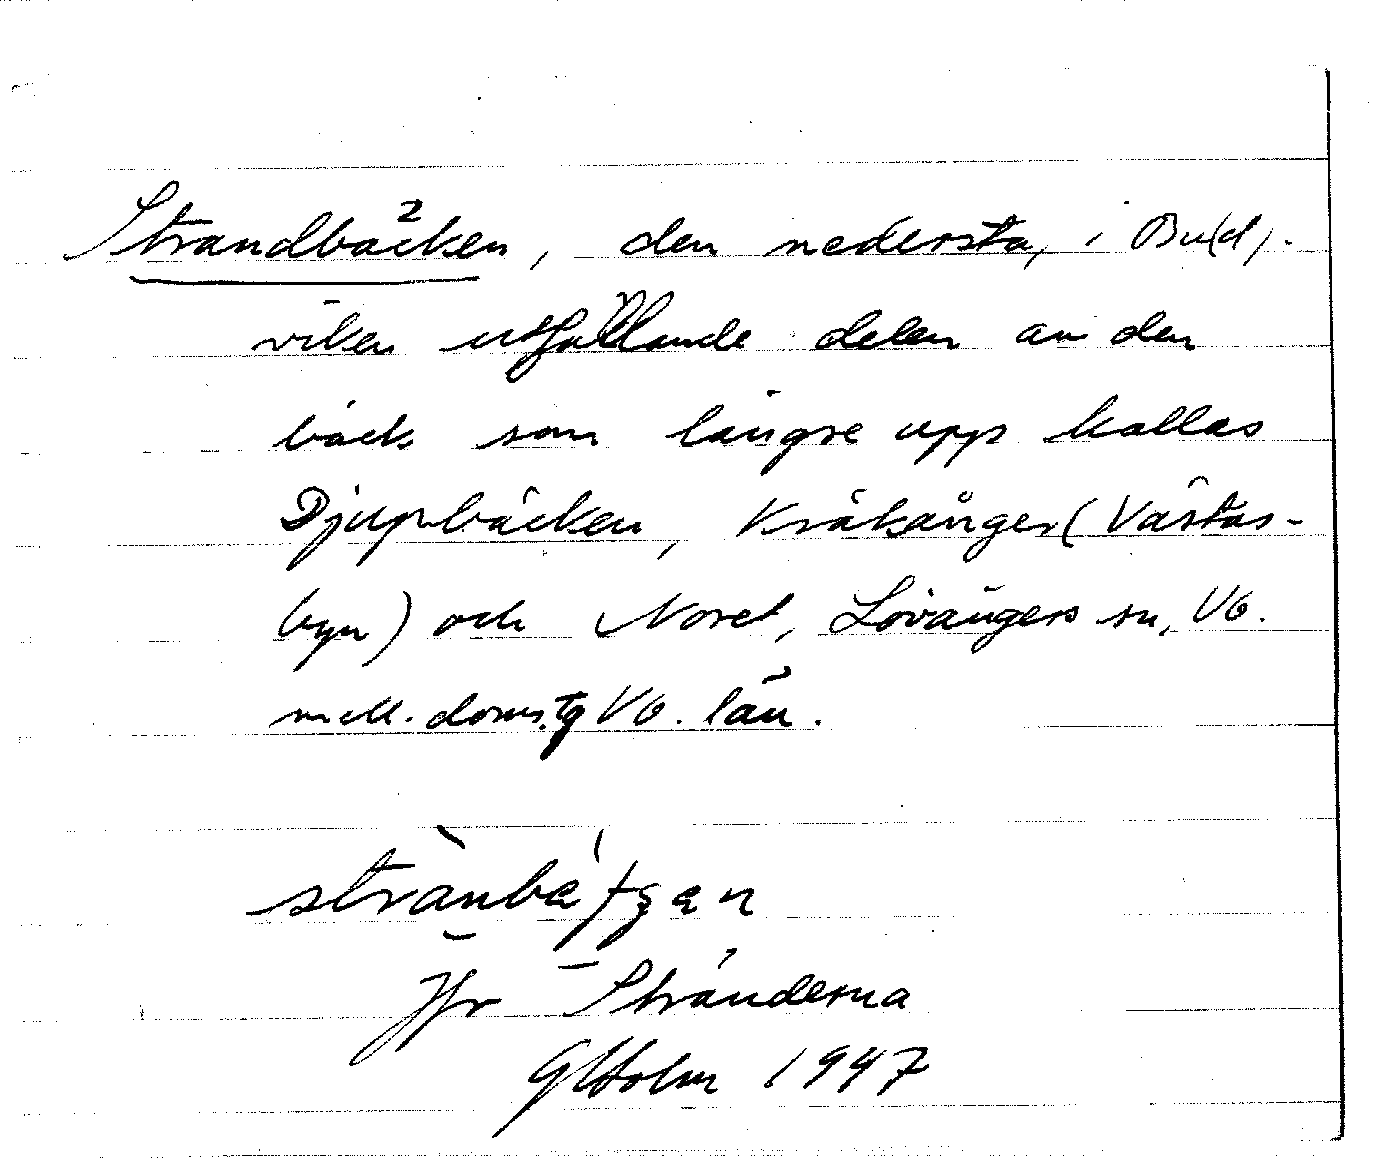 Strandbäcken, den nedersta, i Bu(d).
viken utfallande delen av den
bäck som längre upp kallas
Djupbäcken, Kräkånger (Västas-
byn) och Noret, Lövångers sn, Vb.
mell. doms.tg Vb. län.
Jfr Stränderna
GHolm 1947